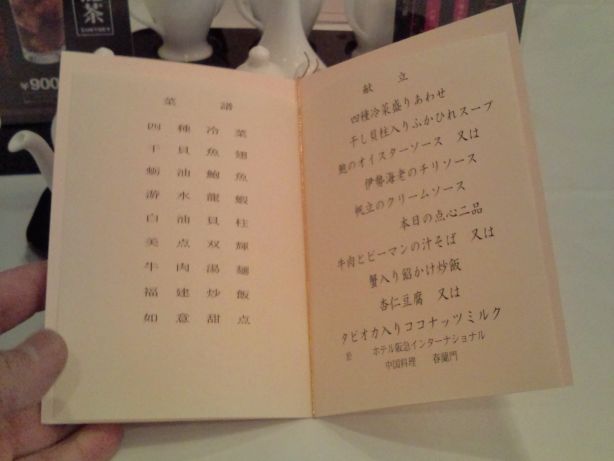 茶
SUNTORY
¥900
菜譜
四種冷菜
干貝魚翅
蛎油鮑魚
游水龍蝦
白油貝柱
美点双輝
牛肉湯麺
福建炒飯
如意甜点
献立
四種冷菜盛りあわせ
干し貝柱入りふかひれスープ
鮑のオイスターソース 又は
伊勢海老のチリソース
帆立のクリームソース
本日の点心二品
牛肉とピーマンの汁そば 又は
蟹入り餡かけ炒飯
杏仁豆腐 又は
タピオカ入りココナッツミルク
於 ホテル阪急インターナショナル
中国料理 春蘭門